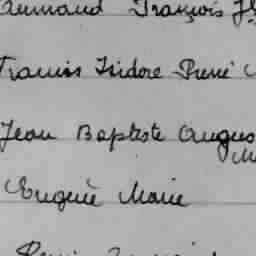 Armand François
Francis Isidore René
Jean Baptiste Augus
Eugène Marie